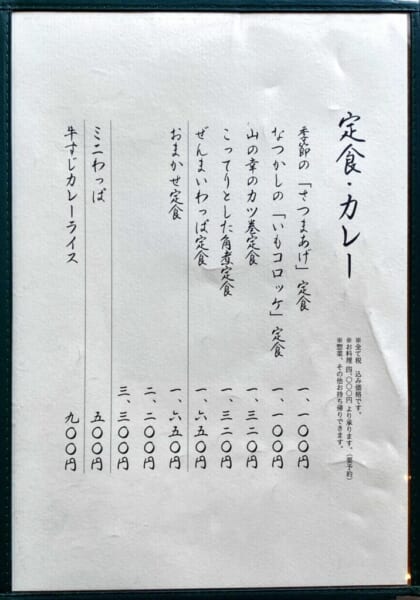 定食・カレー
※全て税込み価格です。
※お料理 四、〇〇〇円より承ります。（要予約）
※惣菜、その他お持ち帰りできます。
季節の「さつまあげ」定食 一、一〇〇円
なつかしの「いもコロッケ」定食 一、一〇〇円
山の幸のカツ巻定食 一、三二〇円
こってりとした角煮定食 一、三二〇円
ぜんまいわっぱ定食 一、六五〇円
おまかせ定食 一、六五〇円
二、二〇〇円
三、三〇〇円
ミニわっぱ 五〇〇円
牛すじカレーライス 九〇〇円